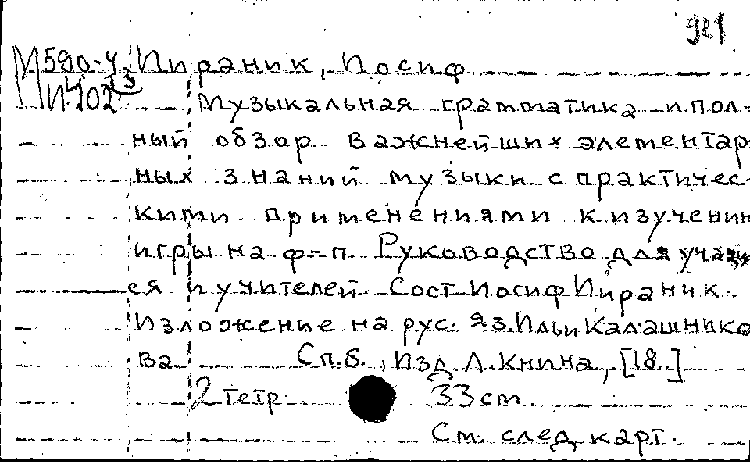 901
М580-4/3 Пираник, Иосиф
И402
Музыкальная грамматика и пол-
ный обзор важнейших элементар
ных знаний музыки с практичес-
кими применениями к изучению
игры на ф-п Руководство для учащи
ся и учителей Сост Иосиф Пираник.
Изложение на рус. яз. Ильи Калашнико
ва Сп.б., Изд Л. Книна, [18.]
2 тетр 33 cm.
См. след карт.